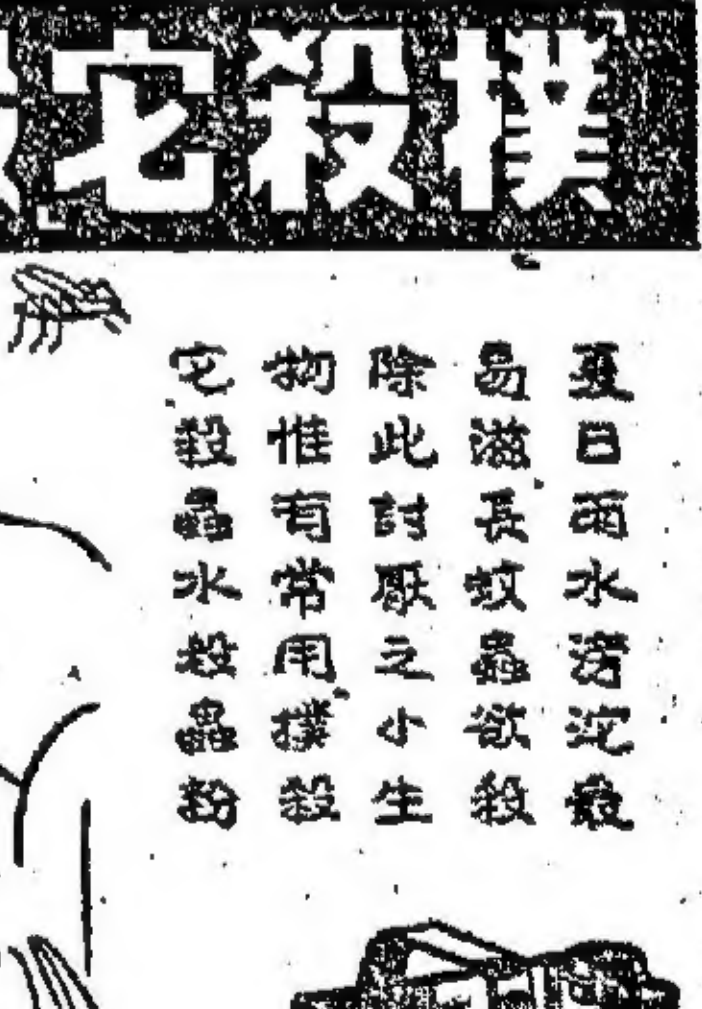 撲殺它
夏日雨水霑泥最
易滋長蚊蟲欲殺
除此討厭之小生
物惟有常用撲殺
它殺蟲水殺蟲粉